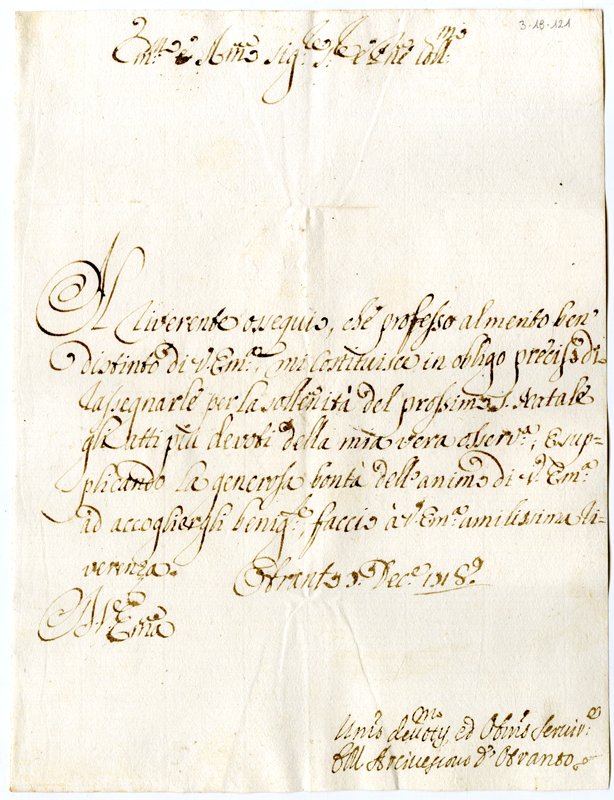 3-18-121
Em.º e R.mo Sig.re S.re e P.ne Coll.mo
Il riverente ossequio, che professo al merito ben
distinto di V. Em.ª, mi costituisce in obligo preciso di
rassegnarle per la sollenità del prossimo S. Natale
gli atti più devoti della mia vera osserv.ª, e sup-
plicando la generosa bontà dell'animo di V.ª Em.ª
ad accogliergli benig.te, faccio à V. Em.ª umilissima ri-
verenza. Otranto Dec.e 1718.
V. Em.ª
Um.o devot.mo ed Oblig.o Servit.e
Arcivescovo d'Otranto